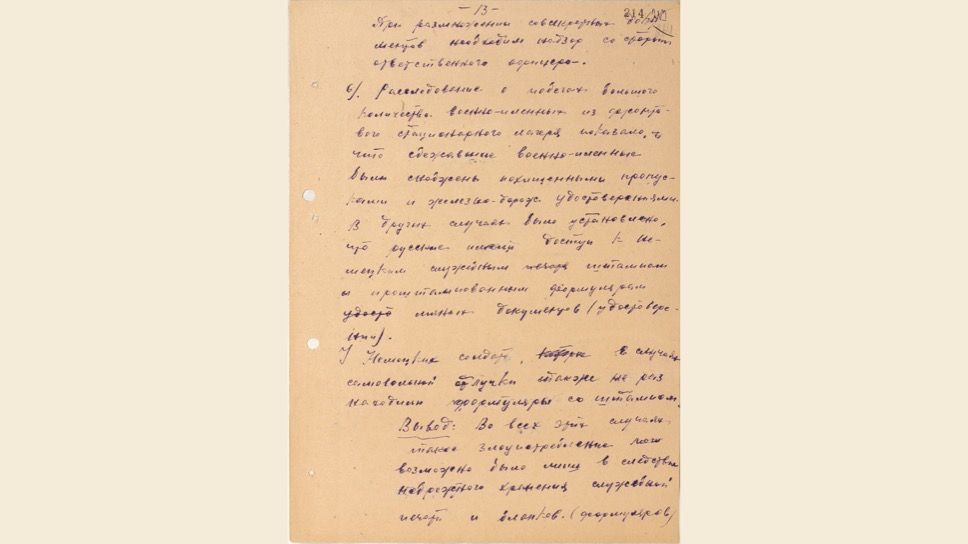 - 13 -
214
При размножении совсекретных доку-
ментов необходим надзор со стороны
ответственного офицера.
6). Расследование о побегах большого
количества военно-пленных из фронто-
вого стационарного лагеря показало,
что сбежавшие военно-пленные
были снабжены похищенными пропус-
ками и железно-дорож. удостоверениями.
В других случаях было установлено,
что русские имели доступ к не-
мецким служебным штампам
и проштампованным формулярам
удосто личных документов (удостовере-
ний).
Немецких солдат, в случаях
самовольной отлучки также не раз
находили формуляры со штампом.
Вывод: Во всех этих случаях
такое злоупотребление
возможно было лишь в следствие
небрежного хранения служебной
печати и бланков. (формуляров)